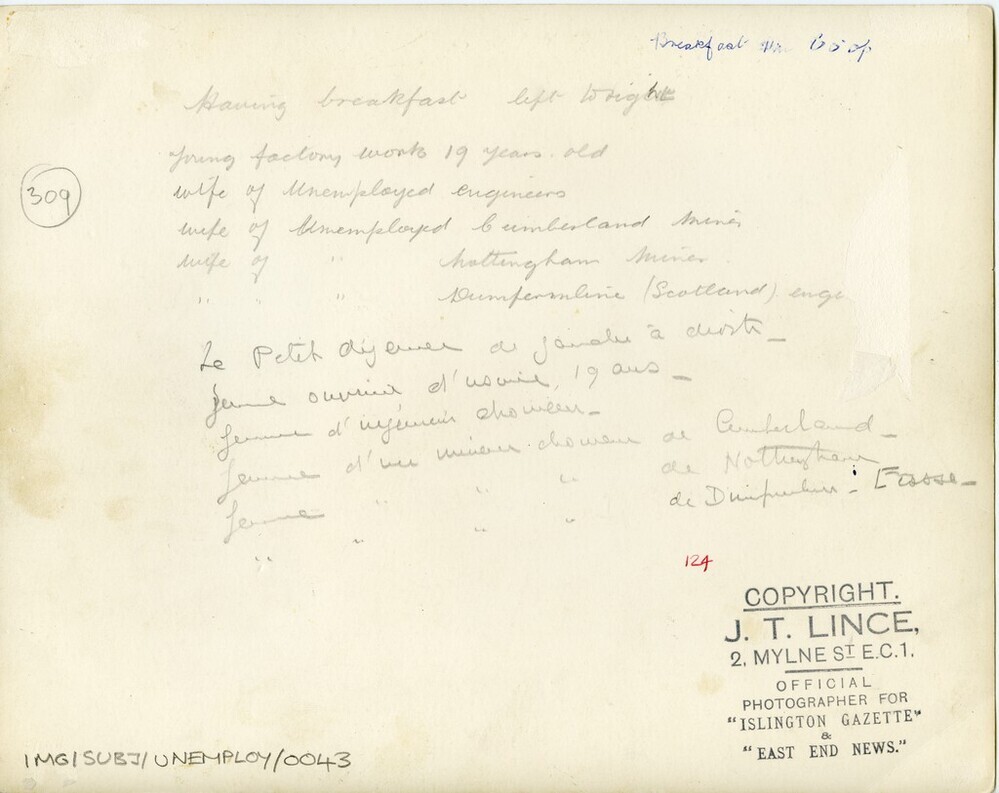 Breakfast
Having breakfast left to right
Young factory work 19 years old
309
wife of Unemployed engineers
wife of Unemployed Cumberland Miner
wife of " Nottingham Miner
" " " Dumfermline (Scotland) engi
Le Petit déjeuner de gauche à droite_
Jeune ouvrière d'usine, 19 ans_
femme d'ingénieur chomeur_
femme d'un mineur chomeur de Cumberland_
femme " " " de Nottingham
" " " " de Dumfermline. Ecosse_
124
COPYRIGHT.
J. T. LINCE,
2, MYLNE ST E.C.1.
OFFICIAL
PHOTOGRAPHER FOR
"ISLINGTON GAZETTE"
&
"EAST END NEWS."
IMG/SUBJ/UNEMPLOY/0043